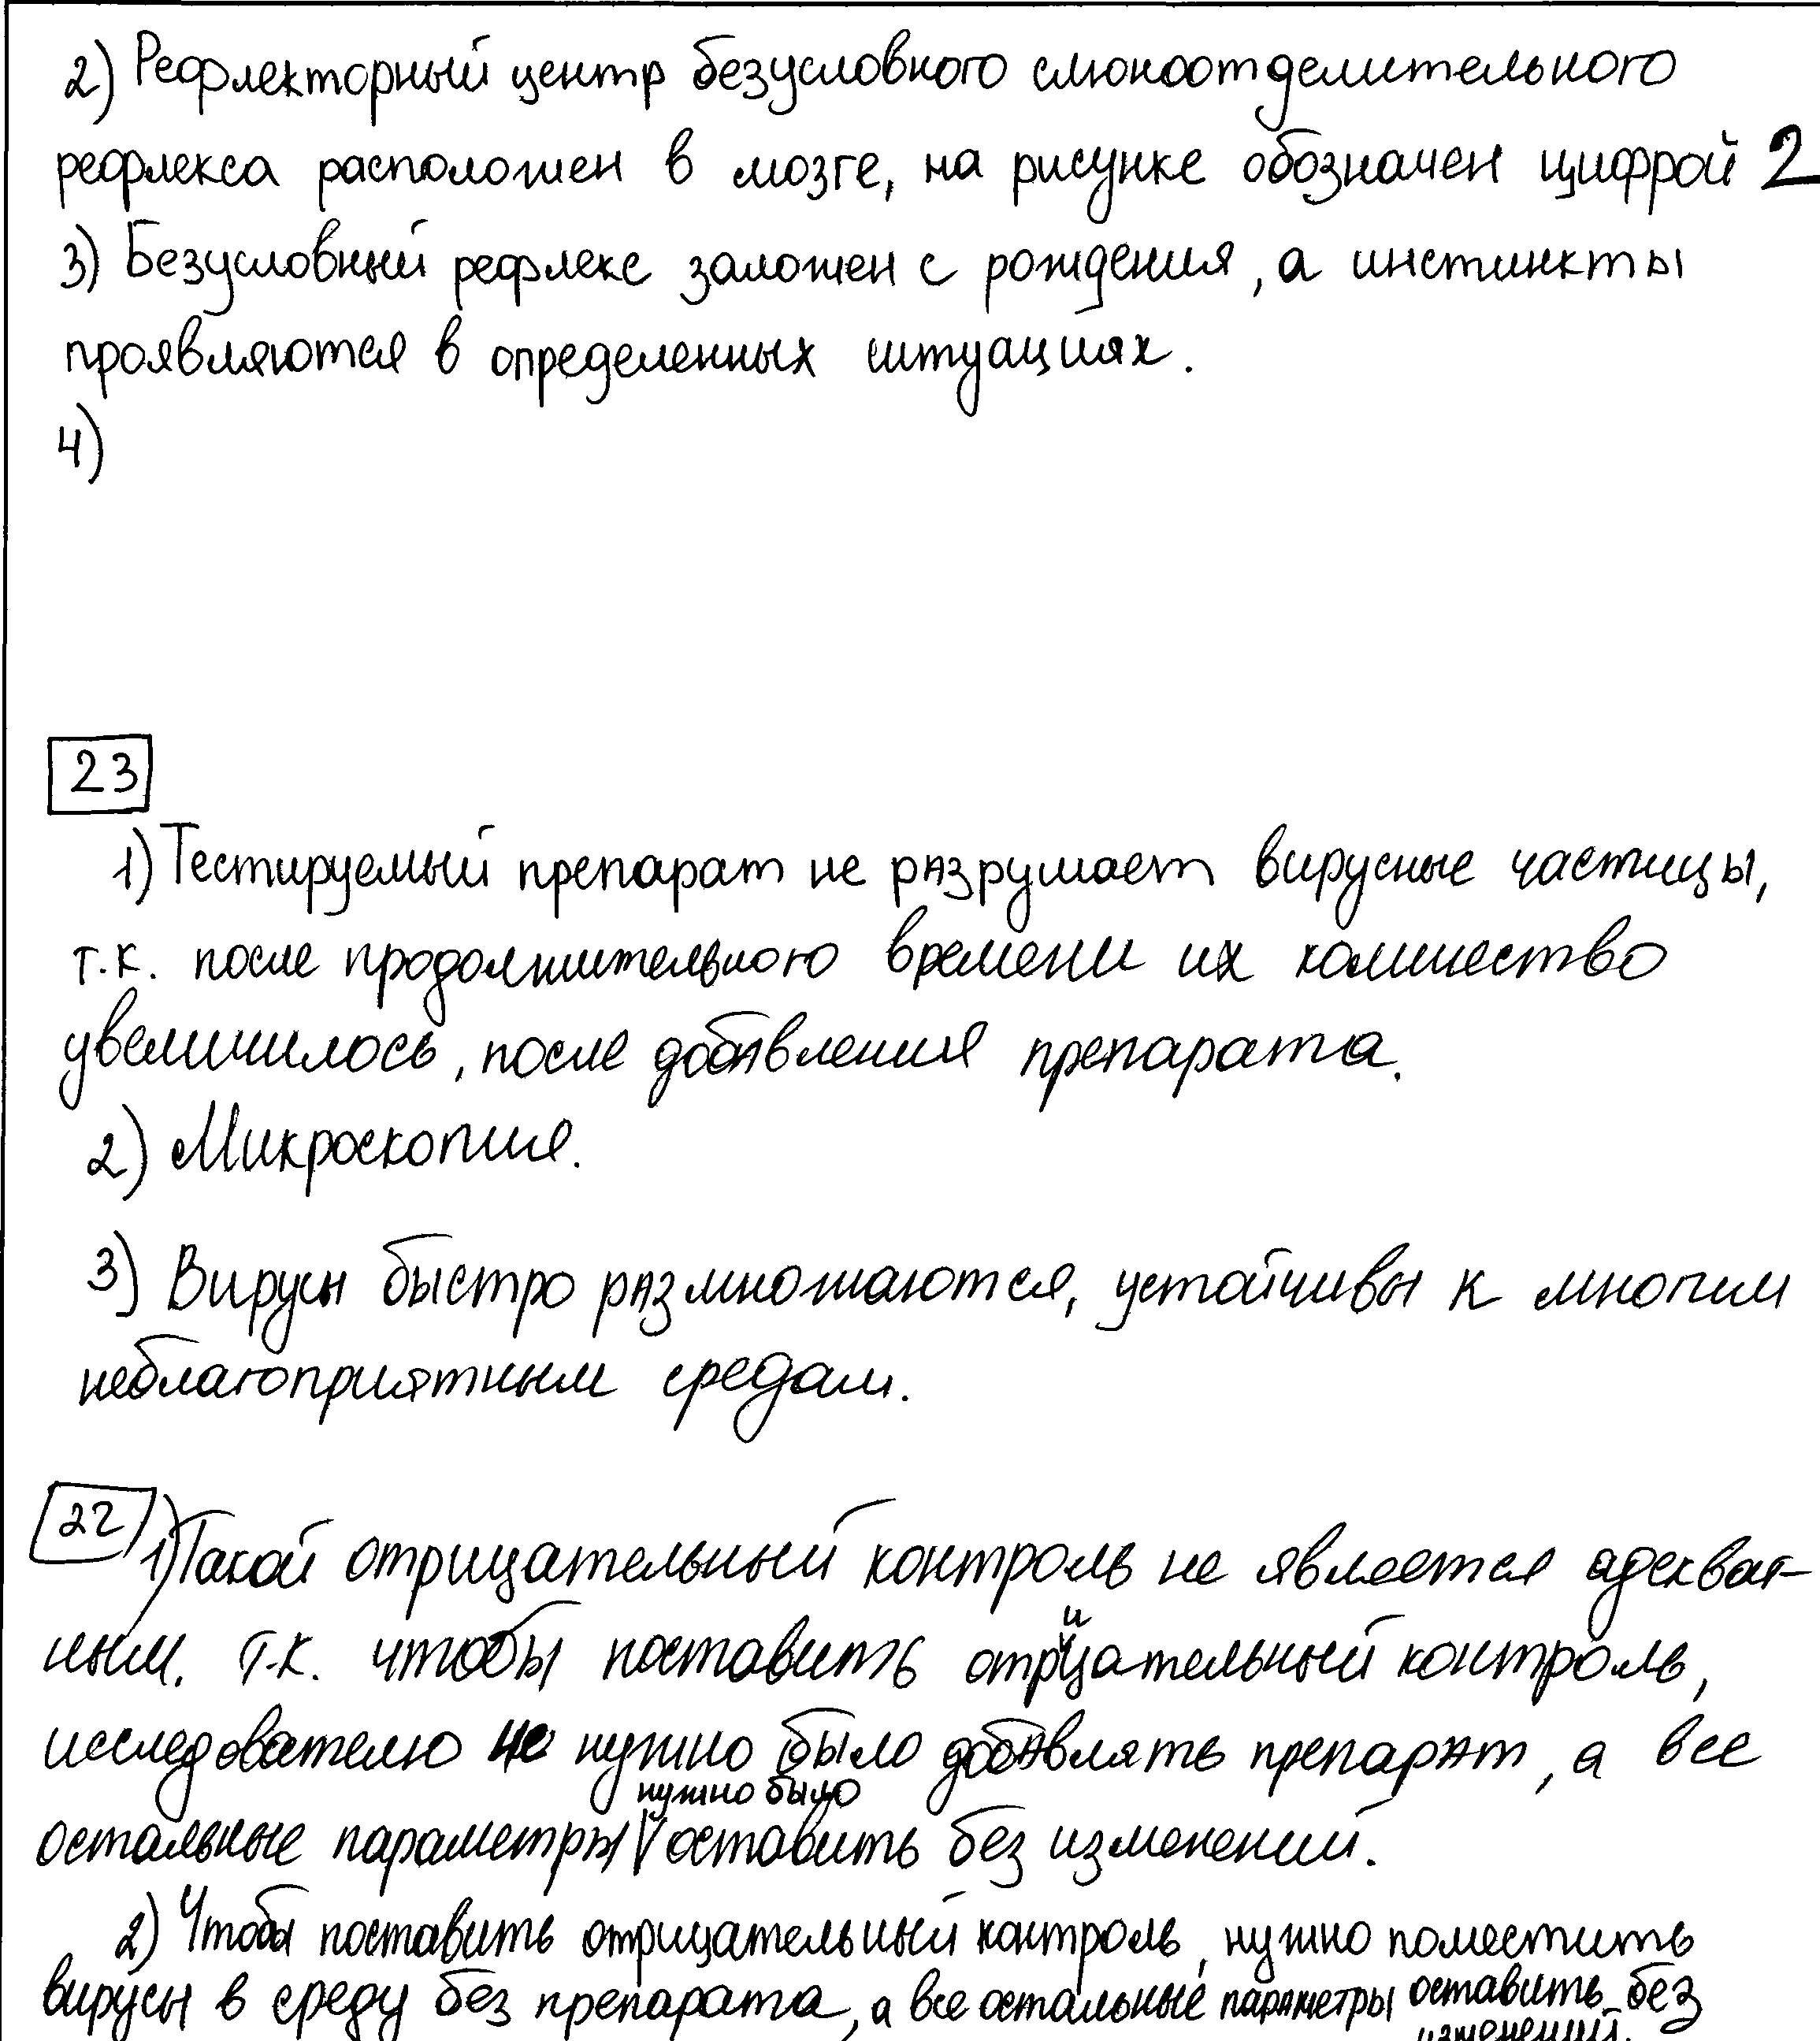 2) Рефлекторный центр безусловного слюноотделительного
рефлекса расположен в мозге, на рисунке обозначен цифрой 2
3) Безусловный рефлекс заложен с рождения, а инстинкты
проявляются в определенных ситуациях.
4)
23
1) Тестируемый препарат не разрушает вирусные частицы,
т.к. после продолжительного времени их количество
увеличилось, после добавления препарата.
2) Микроскопия.
3) Вирусы быстро размножаются, устойчивы к многим
неблагоприятным средам.
22
1) Такой отрицательный контроль не является адекват-
ным. Т.к. чтобы поставить отрицательный контроль,
исследователю не нужно было добавлять препарат, а все
остальные параметры нужно было оставить без изменений.
2) Чтобы поставить отрицательный контроль, нужно поместить
вирусы в среду без препарата, а все остальные параметры оставить без
изменений.